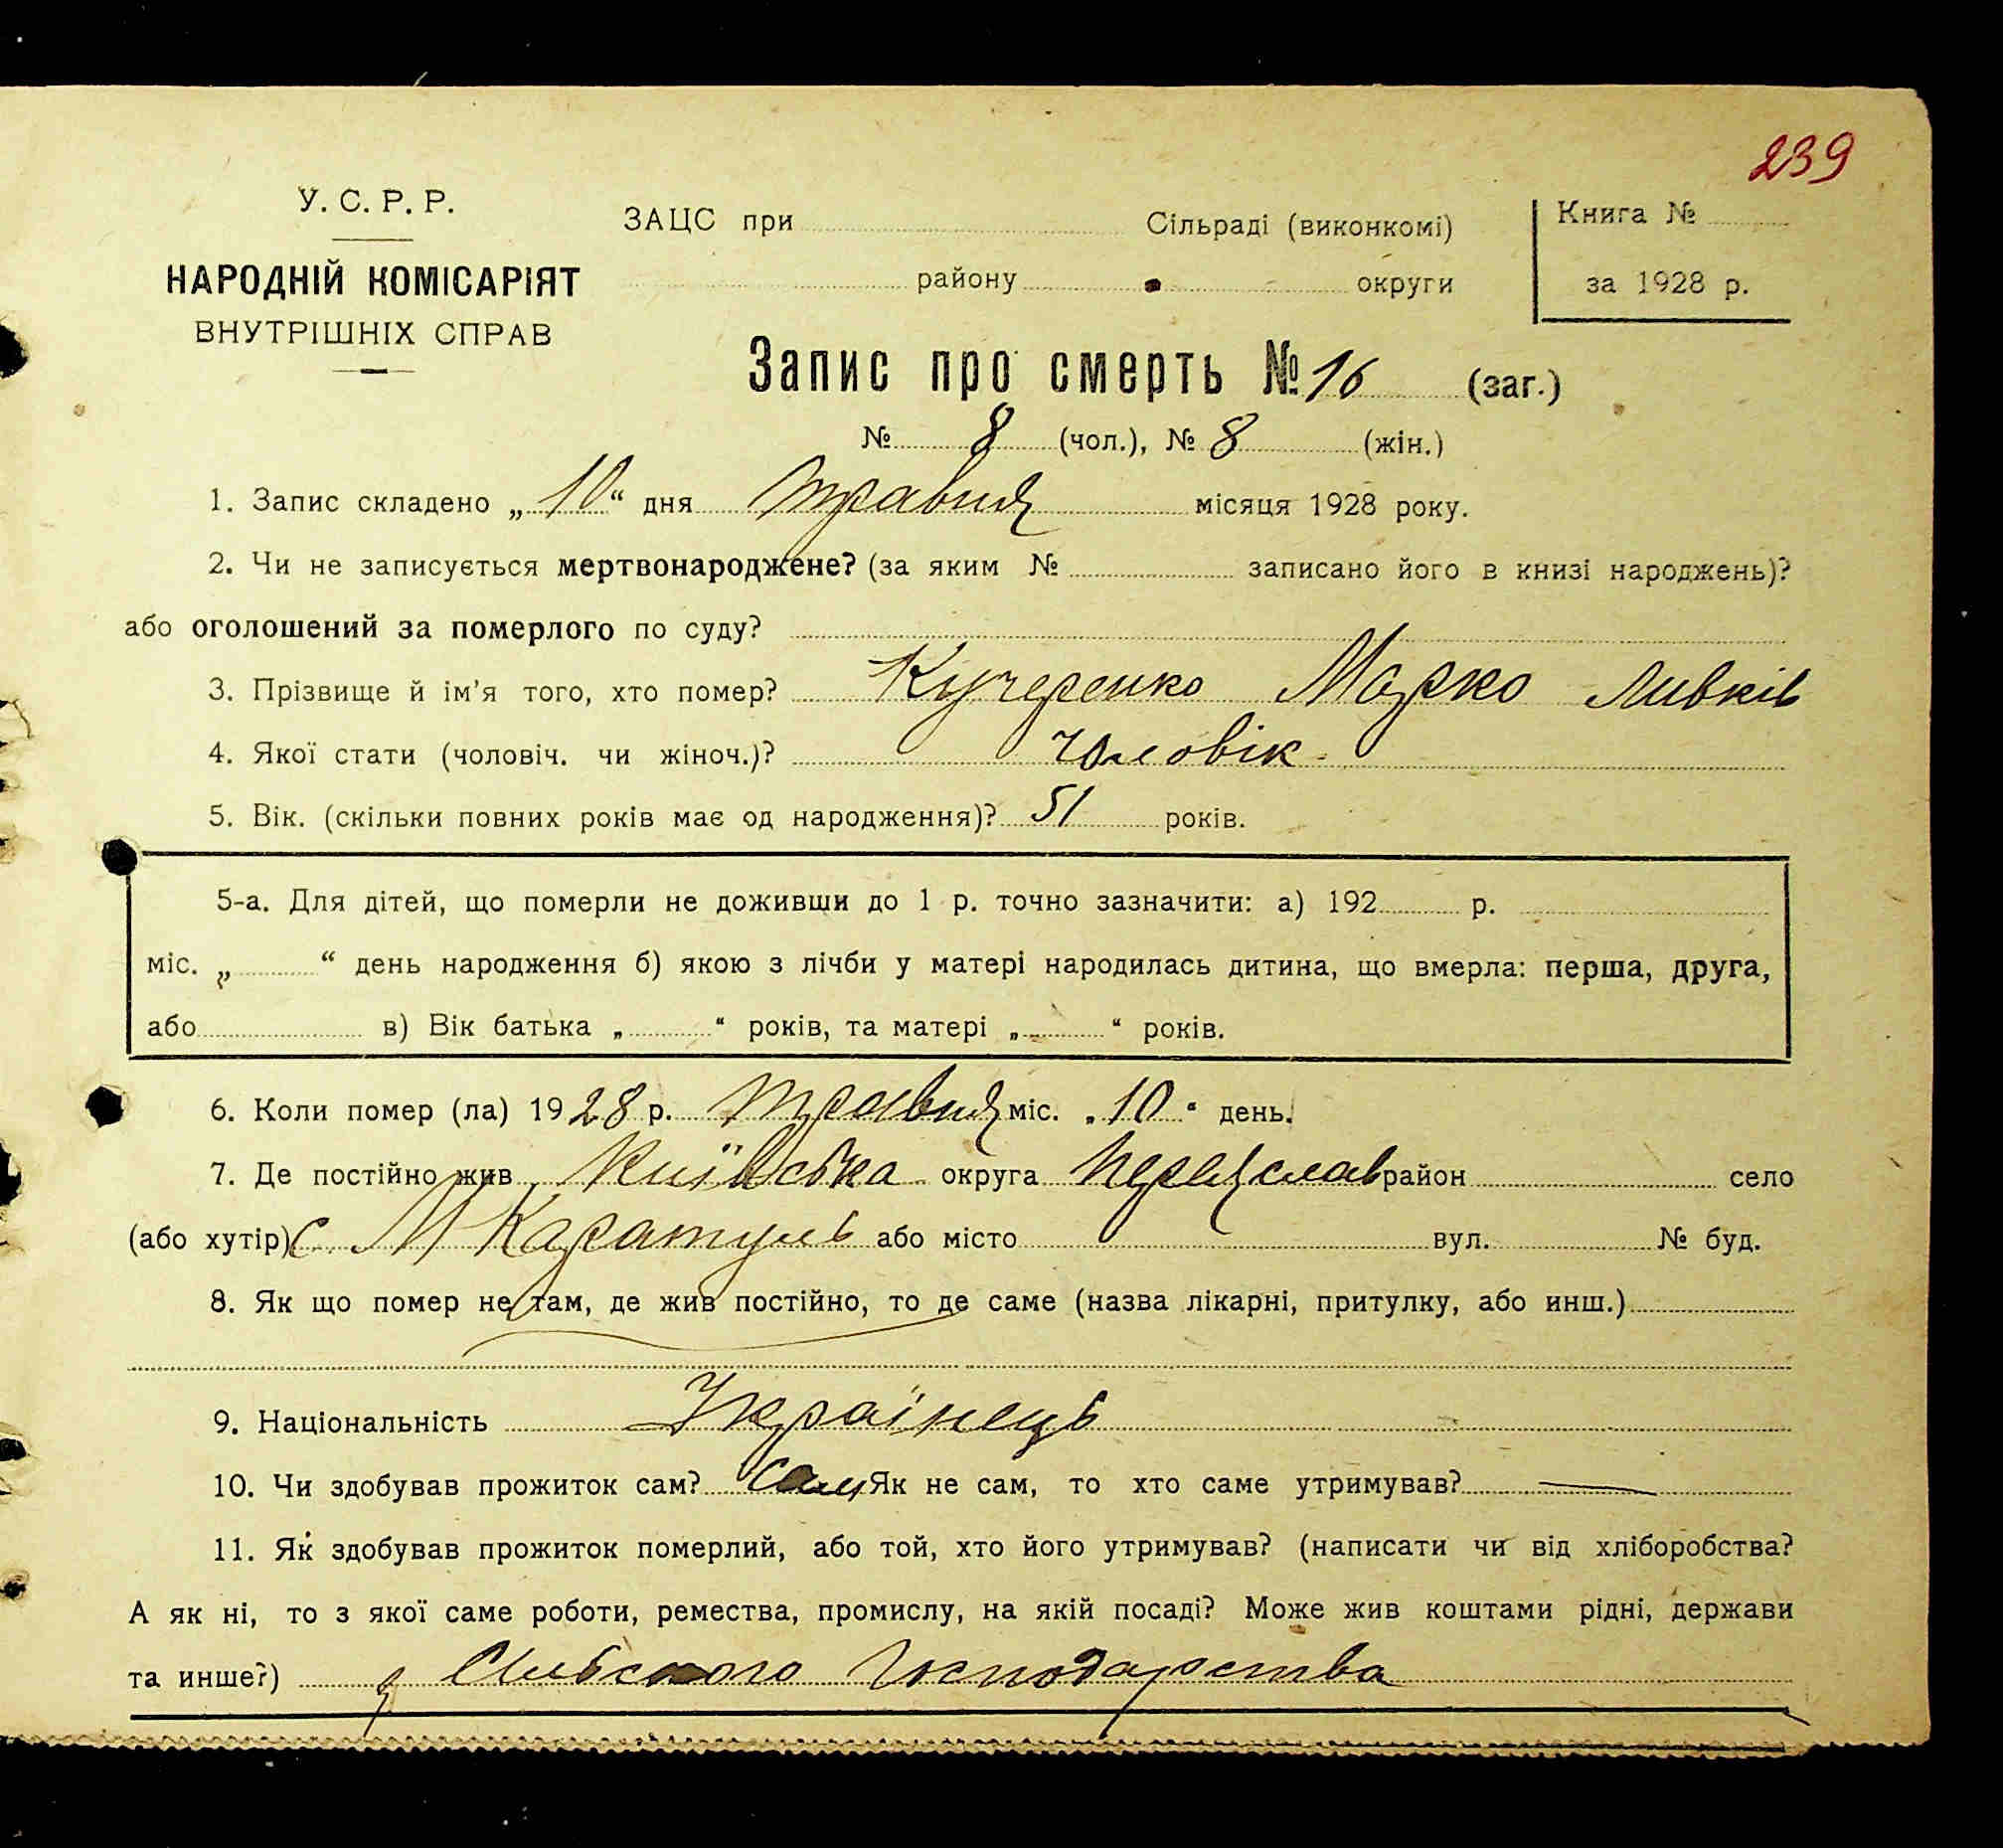 239
У. С. Р. Р.
НАРОДНІЙ КОМІСАРІЯТ
ВНУТРІШНІХ СПРАВ
ЗАЦС при Сільраді (виконкомі)
району округи
Книга №
за 1928 р.
Запис про смерть № 16 (заг.)
№ 8 (чол.), № 8 (жін.)
1. Запис складено „10“ дня травня місяця 1928 року.
2. Чи не записується мертвонароджене? (за яким № записано його в книзі народжень)?
або оголошений за померлого по суду?
3. Прізвище й ім’я того, хто помер? Кучеренко Марко
4. Якої стати (чоловіч. чи жіноч.)? чоловік
5. Вік. (скільки повних років має од народження)? 51 років.
5-а. Для дітей, що померли не доживши до 1 р. точно зазначити: а) 192 р.
міс. „ “ день народження б) якою з лічби у матері народилась дитина, що вмерла: перша, друга,
або в) Вік батька „ “ років, та матері „ “ років.
6. Коли помер (ла) 1928 р. травня міс. „10“ день.
7. Де постійно жив Київська округа Переяслав район село
(або хутір) с. М Каратуль або місто вул. № буд.
8. Як що помер не там, де жив постійно, то де саме (назва лікарні, притулку, або инш.)
9. Національність Українець
10. Чи здобував прожиток сам? Сам Як не сам, то хто саме утримував? —
11. Як здобував прожиток померлий, або той, хто його утримував? (написати чи від хліборобства?
А як ні, то з якої саме роботи, ремества, промислу, на якій посаді? Може жив коштами рідні, держави
та инше?) з Сільського Господарства